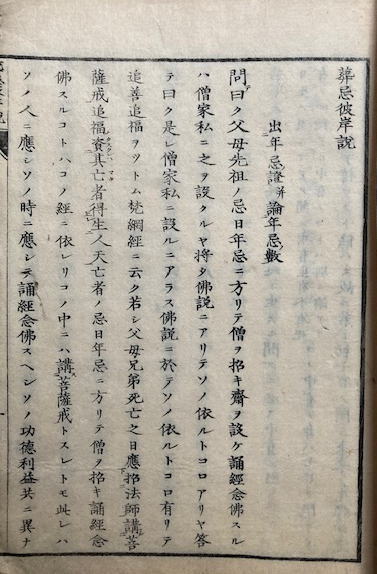 葬忌彼岸説
出年忌證并論年忌數
問曰ク父母先祖ノ忌日年忌ニ方リテ僧ヲ招キ齋ヲ設ケ誦經念佛スル
ハ僧家私ニ之ヲ設クルヤ將タ佛説ニアリテソノ依ルトコロアリヤ答
テ曰ク是レ僧家私ニ設ルニアラス佛説ニ於テソノ依ルトコロ有リテ
追善追福ヲツトム梵網經ニ云ク若シ父母兄弟死亡之日應招法師講菩
薩戒追福資其亡者得生人天亡者ノ忌日年忌ニ方リテ僧ヲ招キ誦經念
佛スルコトハコノ經ニ依レリコノ中ニハ講菩薩戒トスレトモ此レハ
ソノ人ニ應シソノ時ニ應シテ誦經念佛スヘシソノ功德利益共ニ異ナ